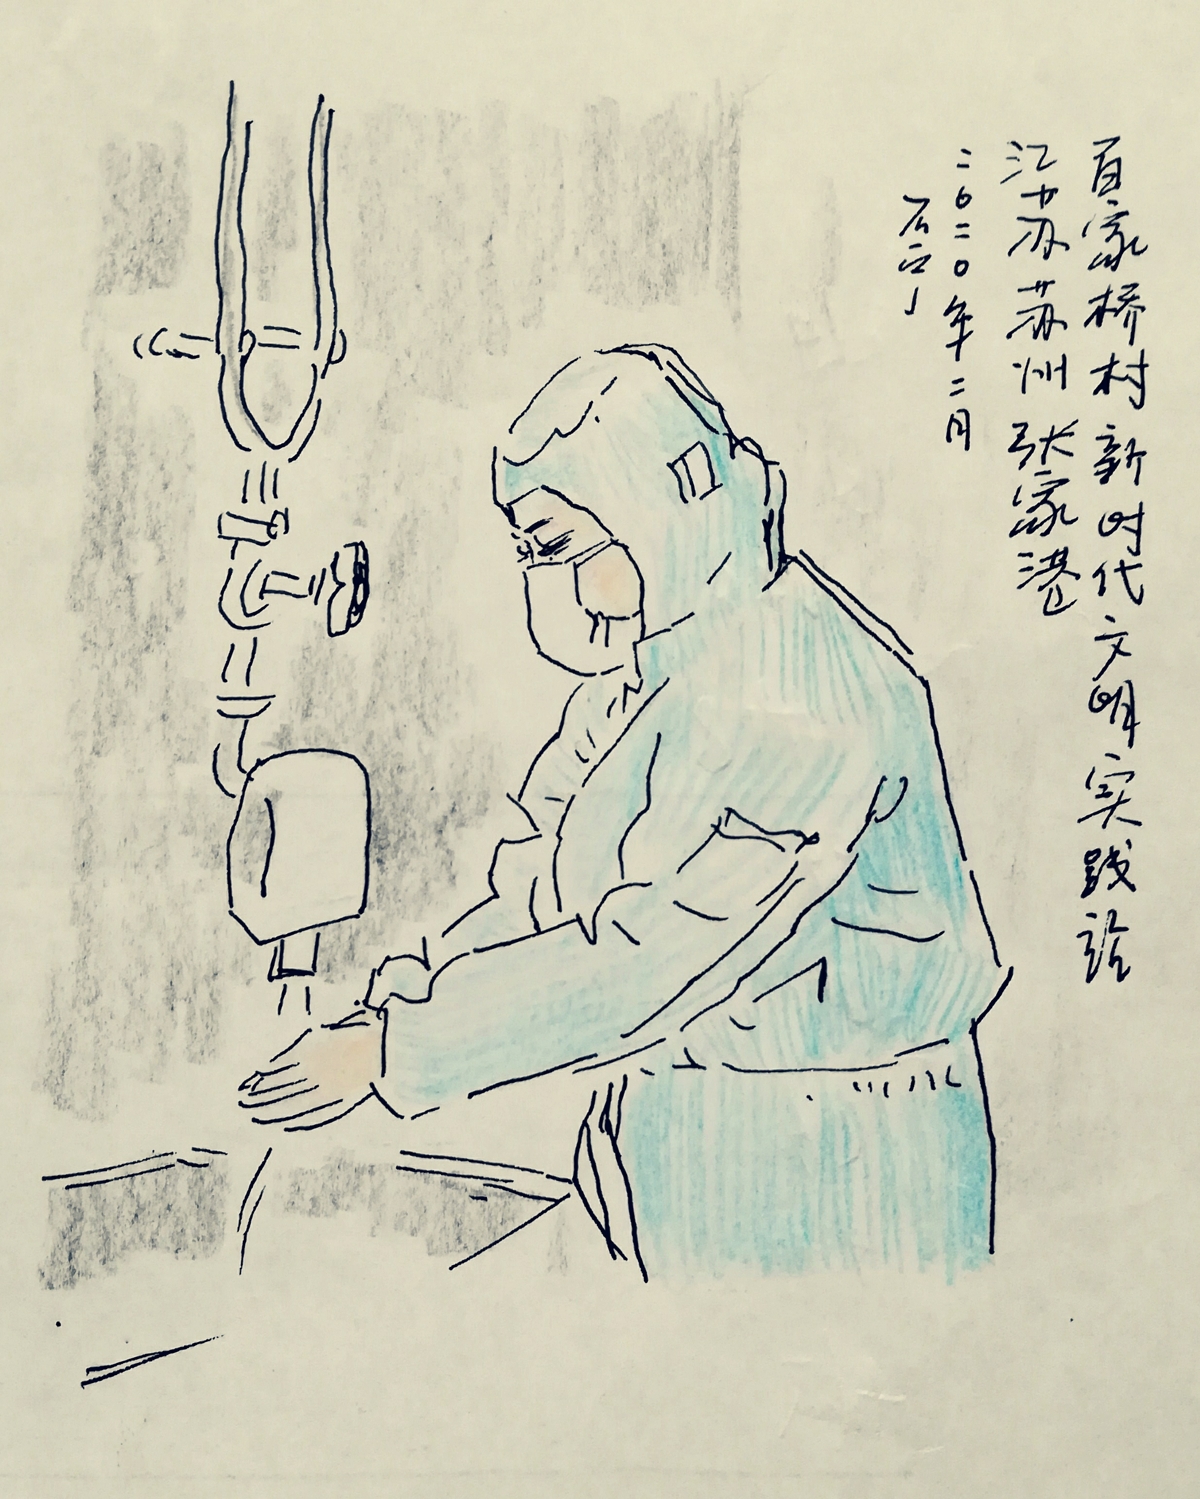 百家桥村新时代文明实践站
江苏苏州张家港
二0二0年二月